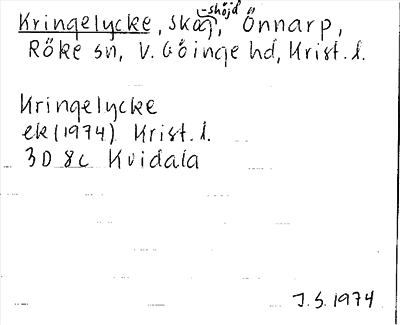 Kringelycke, skog, -shöjd Önnarp,
Röke sn, V. Göinge hd, Krist. l.
Kringelycke
ek (1974) Krist. l.
3D 8c Kvidala
J.S. 1974